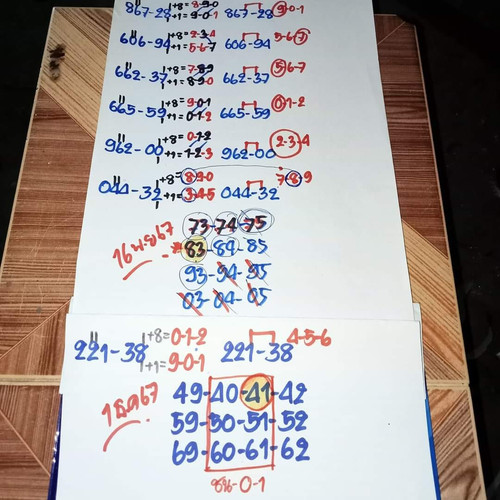 867-28 +8=8-9-0 867-28 9-0-1
+1=9-0-1
606-94 +8=2-3-4 606-94 5-6-7
+1=5-6-7
662-37 +8=7-8-9 662-37 5-6-7
+1=8-9-0
665-59 +8=9-0-1 665-59 0-1-2
+1=0-1-2
962-00 +8=0-1-2 962-00 2-3-4
+1=1-2-3
044-32 +8=8-9-0 044-32 7-8-9
+1=3-4-5
73-74-75
16 พย67 83-84-85
93-94-95
03-04-05
221-38 +8=0-1-2 221-38 4-5-6
+1=9-0-1
49-40-41-42
1 ธค67 59-50-51-52
69-60-61-62
-0-1